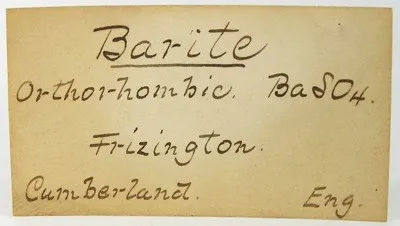 Barite
Orthorhombic. BaSO4.
Frizington.
Cumberland. Eng.